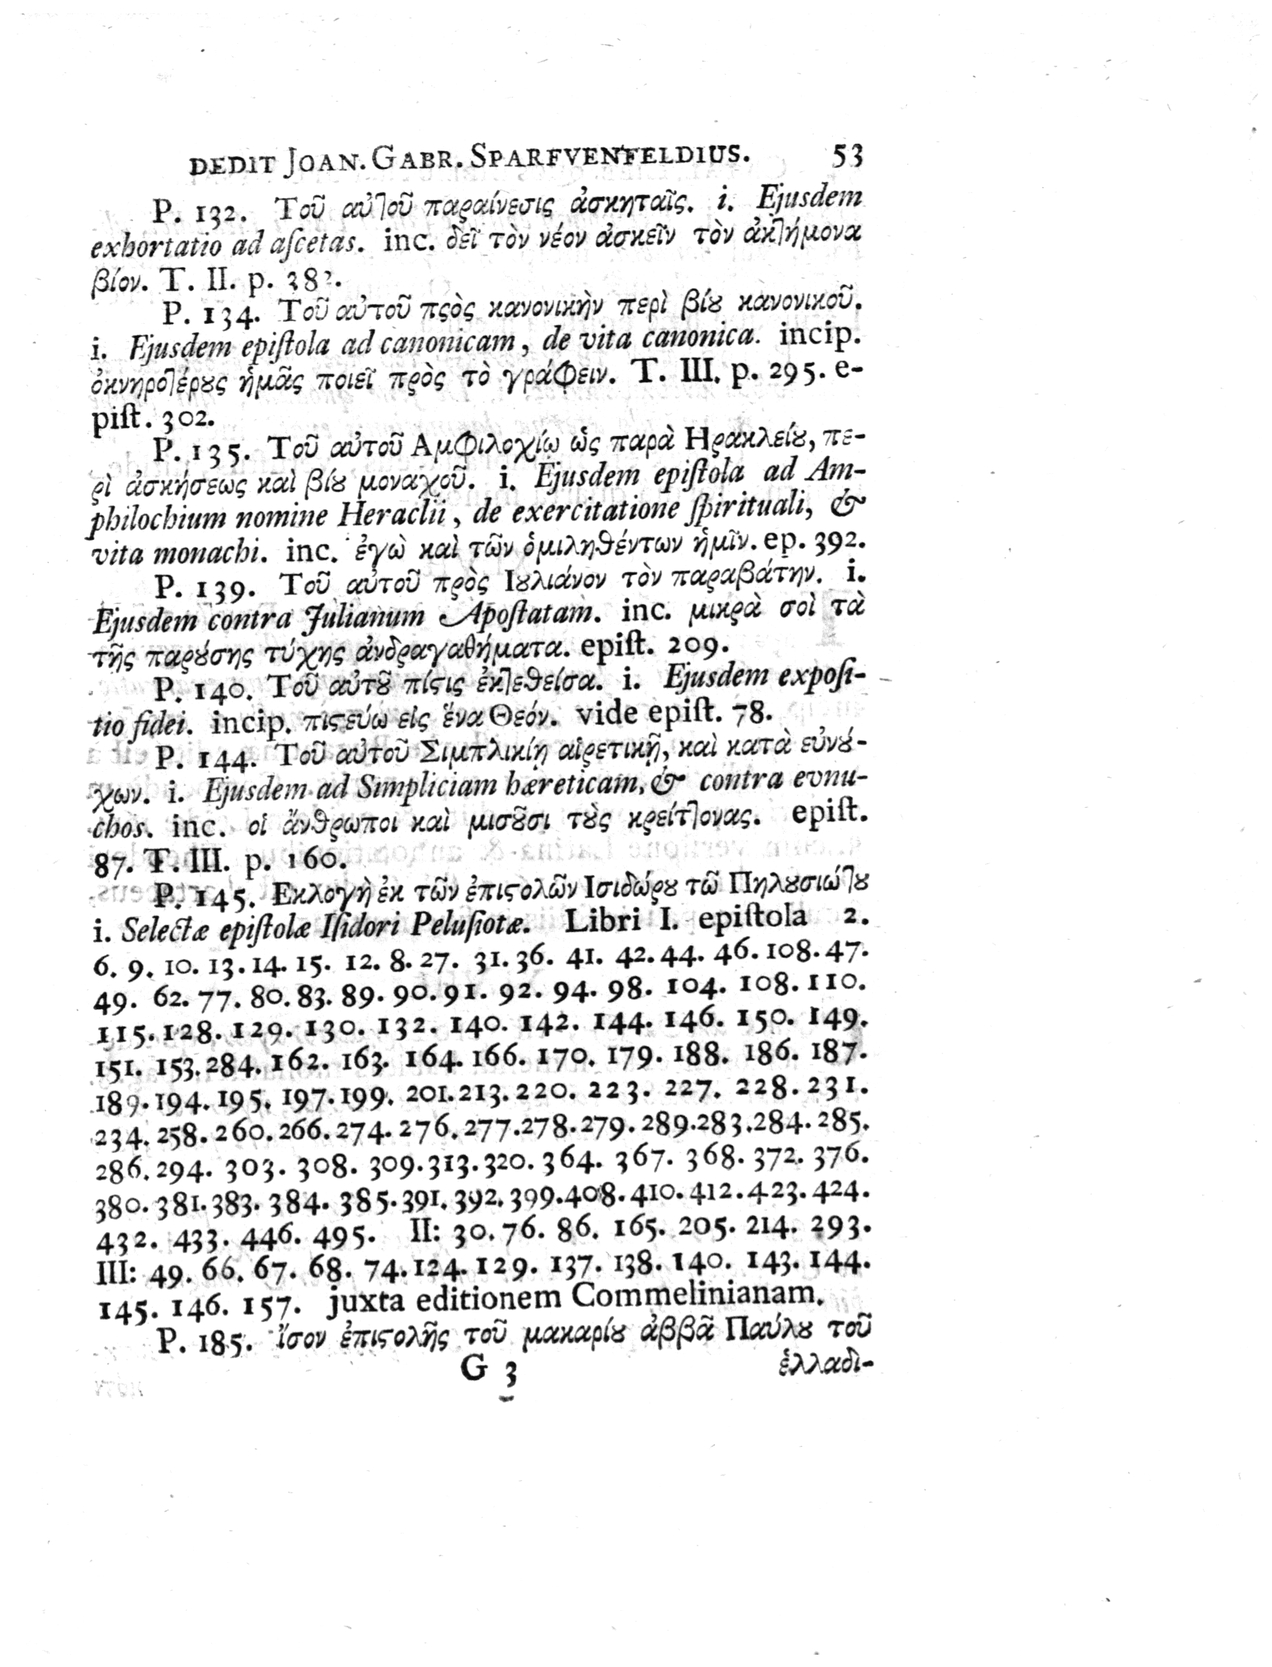 DEDIT JOAN. GABR. SPARFVENFELDIUS. 53
P. 132. Τοῦ αὐτοῦ παραίνεσις ἀσκηταῖς. i. Ejusdem
exhortatio ad aſcetas. inc. δεῖ τὸν νέον ἀσκεῖν τὸν ἀκτήμονα
βίον. T. II. p. 382.
P. 134. Τοῦ αὐτοῦ πρὸς κανονικὴν περὶ βίȣ κανονικοῦ.
i. Ejusdem epiſtola ad canonicam, de vita canonica. incip.
ὀκνηροτέρȣς ἡμᾶς ποιεῖ πρὸς τὸ γράφειν. T. III. p. 295. e-
piſt. 302.
P. 135. Τοῦ αὐτοῦ Αμφιλοχίῳ ὡς παρὰ Ηρακλείȣ, πε-
ρὶ ἀσκήσεως καὶ βίȣ μοναχοῦ. i. Ejusdem epiſtola ad Am-
philochium nomine Heraclii, de exercitatione ſpirituali, &
vita monachi. inc. ἐγὼ καὶ τῶν ὁμιληθέντων ἡμῖν. ep. 392.
P. 139. Τοῦ αὐτοῦ πρὸς Ιȣλιάνον τὸν παραβάτην. i.
Ejusdem contra Julianum Apoſtatam. inc. μικρὰ σοὶ τὰ
τῆς παρȣ́σης τύχης ἀνδραγαθήματα. epiſt. 209.
P. 140. Τοῦ αὐτȣ͂ πίϛις ἐκτεθεῖσα. i. Ejusdem expoſi-
tio fidei. incip. πιϛεύω εἰς ἕνα Θεόν. vide epiſt. 78.
P. 144. Τοῦ αὐτοῦ Σιμπλικίῃ αἱρετικῇ, καὶ κατὰ εὐνȣ́-
χων. i. Ejusdem ad Simpliciam hæreticam, & contra evnu-
chos. inc. οἱ ἄνθρωποι καὶ μισȣ͂σι τȣ̀ς κρείττονας. epiſt.
87. T. III. p. 160.
P. 145. Εκλογὴ ἐκ τῶν ἐπιϛολῶν Ισιδώρȣ τῶ Πηλȣσιώτȣ
i. Selectæ epiſtolæ Iſidori Peluſiotæ. Libri I. epiſtola 2.
6. 9. 10. 13. 14. 15. 12. 8. 27. 31. 36. 41. 42. 44. 46. 108. 47.
49. 62. 77. 80. 83. 89. 90. 91. 92. 94. 98. 104. 108. 110.
115. 128. 129. 130. 132. 140. 142. 144. 146. 150. 149.
151. 153. 284. 162. 163. 164. 166. 170. 179. 188. 186. 187.
189. 194. 195. 197. 199. 201. 213. 220. 223. 227. 228. 231.
234. 258. 260. 266. 274. 276. 277. 278. 279. 289. 283. 284. 285.
286. 294. 303. 308. 309. 313. 320. 364. 367. 368. 372. 376.
380. 381. 383. 384. 385. 391. 392. 399. 408. 410. 412. 423. 424.
432. 433. 446. 495. II: 30. 76. 86. 165. 205. 214. 293.
III: 49. 66. 67. 68. 74. 124. 129. 137. 138. 140. 143. 144.
145. 146. 157. juxta editionem Commelinianam.
P. 185. ἴσον ἐπιϛολῆς τοῦ μακαρίȣ ἀββᾶ Παύλȣ τοῦ
G 3 ἑλλαδι-